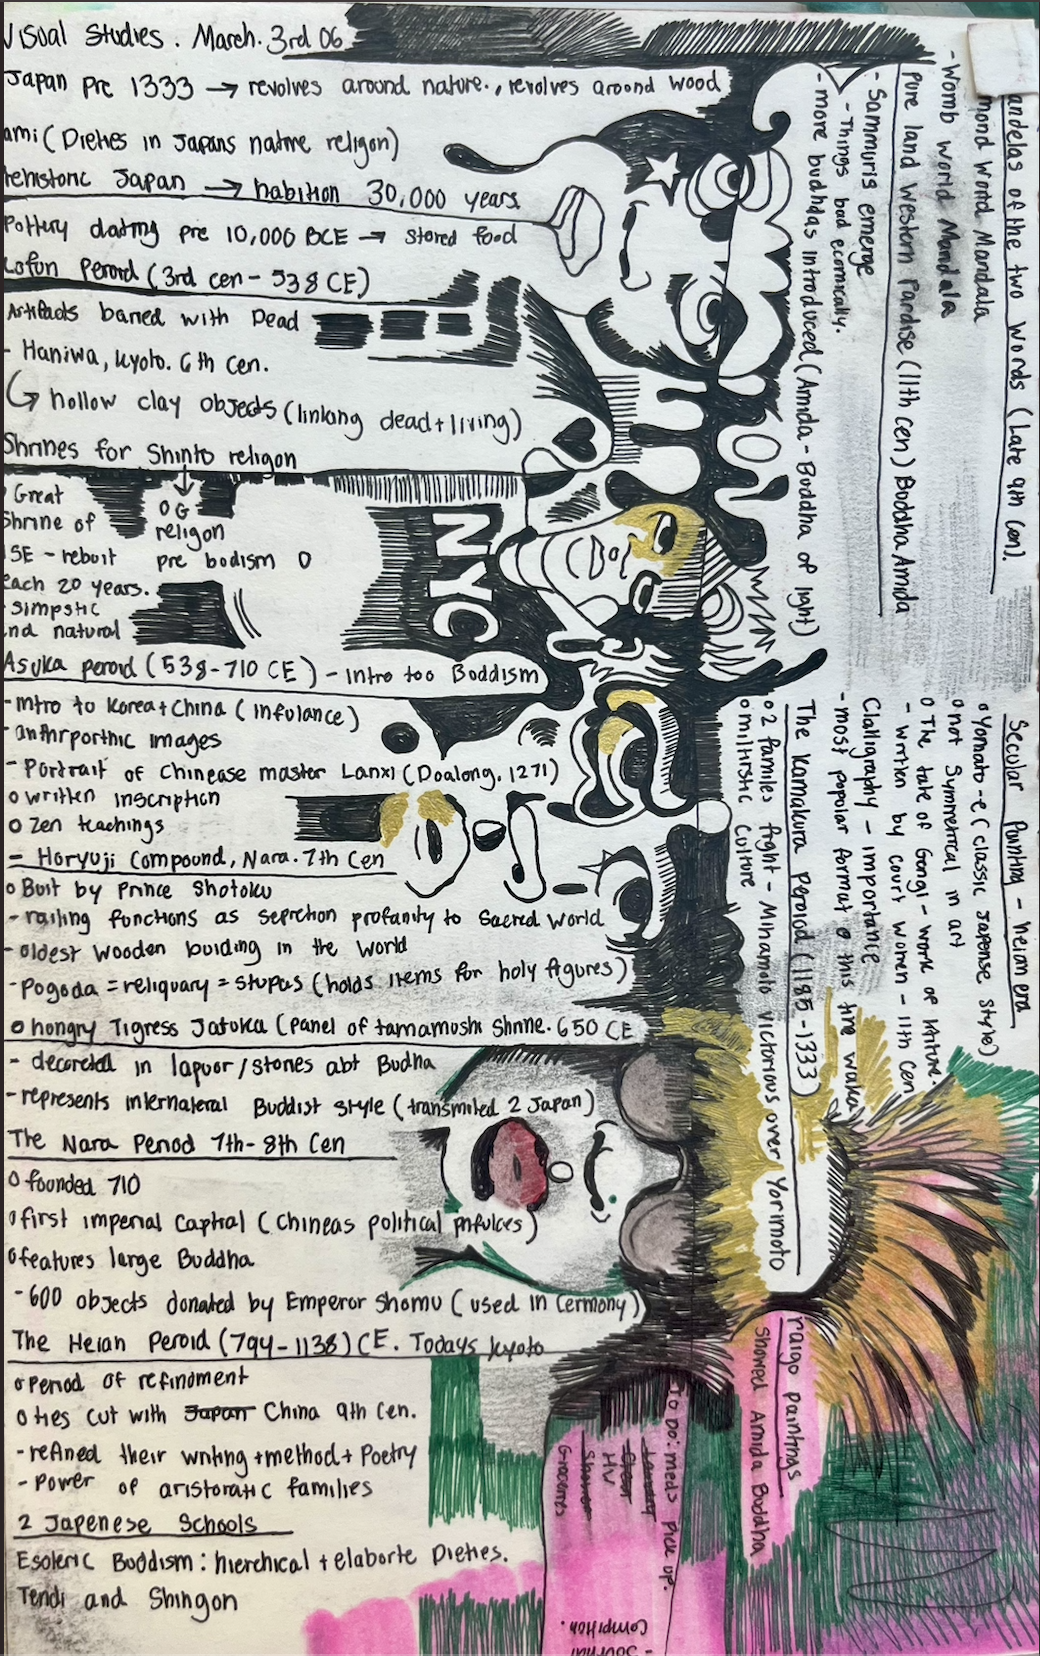 Visual Studies. March. 3rd 06
Japan Pre 1333 → revolves around nature., revolves around wood
ami (Dieties in Japans native religon)
rehistoric Japan → habition 30,000 years.
Pottery dating pre 10,000 BCE → stored food
Kofun Peroid (3rd cen - 538 CE)
Artifacts baried with Dead
- Haniwa, Kyoto. 6th Cen.
↳ hollow clay objects (linking dead + living)
Shrines for Shinto religon
↓
Great
Shrine of
ISE - rebuit
each 20 years.
- simpstic
nd natural
OG
religon
pre bodism
Asuka peroid (538-710 CE) - Intro too Boddism
- intro to Korea + China (infulance)
- anthrporthic images
- Portrait of Chinease master Lanxi (Doalong, 1271)
o written inscription
o Zen teachings
= Horyuji Compound, Nara. 7th Cen
o Built by Prince Shotoku
- railing functions as seprction profanity to Sacred world
- oldest wooden buiding in the world
- Pogoda = reliquary = stupas (holds items for holy figures)
o hongry Tigress Jatuka (panel of tamamushi Shrine. 650 CE
- decoreted in lapuor / Stones abt Budha
- represents internateral Buddist style (transmited 2 Japan)
The Nara Period 7th - 8th Cen
o founded 710
o first imperial Captial (Chineas political
o features large Buddha
- 600 objects donated by Emperor Shomu (used in Cermony)
The Heian Peroid (794-1138) CE. Todays kyoto
o Period of refinment
o ties cut with Japan China 9th Cen.
- refined their writing + method + Poetry
- Power of aristoratic families
2 Japenese Schools
Esoleric Buddism: hierchical + elaborte Dieties.
Tendi and Shingon
NYC
andelas of the two Words (Late 9th Cen).
mond World Mandala
- Womb World Mandala
Pure land Western Pardise (11th Cen) Buddha Amida
- Sammuris emerge
- Things bad ecormically.
- more budhdas introduced (Amida - Buddha of light)
Secular Painting - heian era
o Yomato-e (classic Japense style)
o not Symmetrical in art
o The tale of Gongi - work of
- written by court women - 11th Cen
Challigraphy - importance
- most popilar format @ this time waka
The Kamakura Peroid (1185-1333)
o 2 familes fight - Minamoto victorious over Yorimoto
o militirstic Culture
raigo paintings
Showed Amida Buddha
To Do: meds pick up.
HV
Groceries
- Journal
Compition.